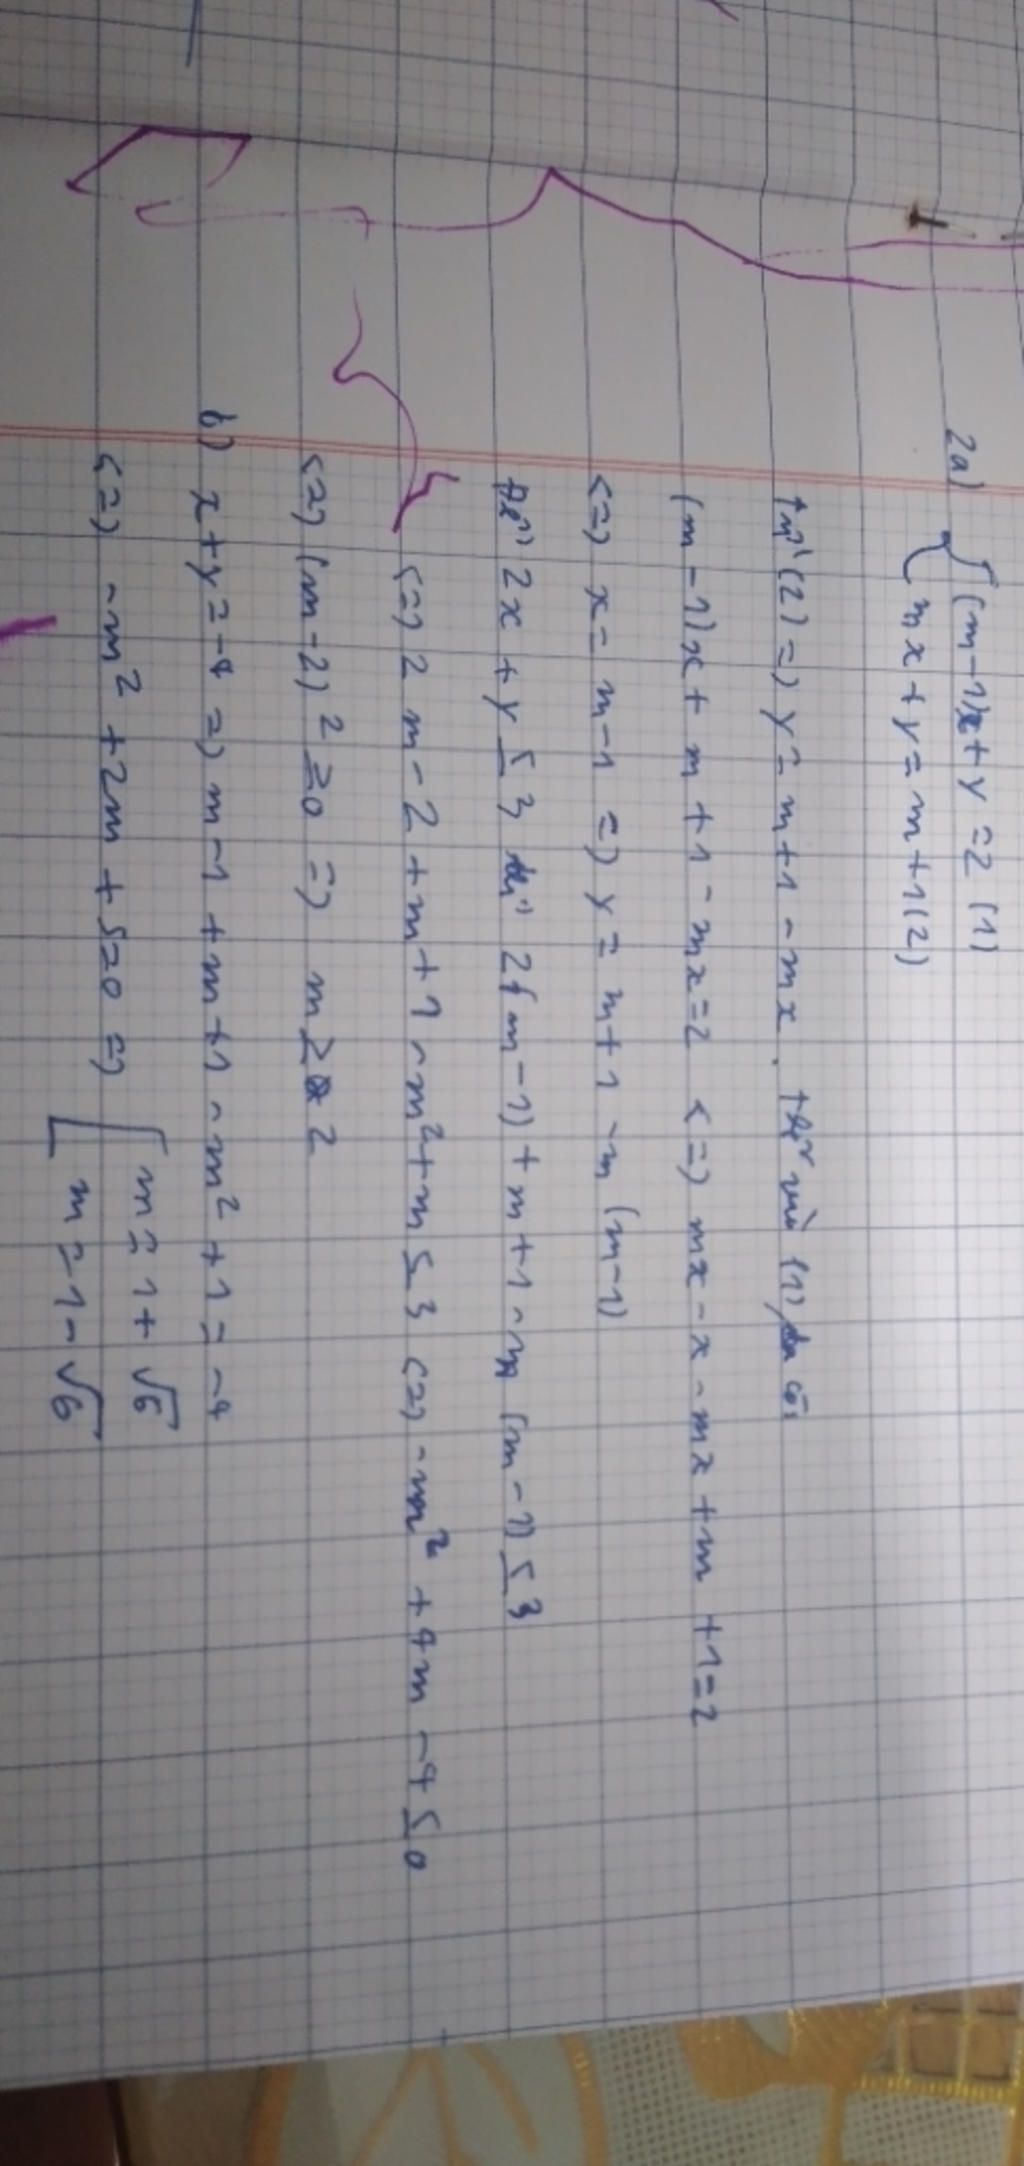 2a) { (m-1)x + y = 2 (1)
mx + y = m + 1 (2)
từ (2) => y = m+1 - mx . thay vào (1), ta có:
(m-1)x + m + 1 - mx = 2 <=> mx - x - mx + m + 1 = 2
<=> x = m-1 => y = m+1 - m (m-1)
Để 2x + y ≤ 3 thì 2(m-1) + m+1 - m (m-1) ≤ 3
<=> 2m - 2 + m + 1 - m² + m ≤ 3 <=> -m² + 4m - 4 ≤ 0
<=> (m-2)² ≥ 0 => m ≥ 2
b) x + y = -4 => m-1 + m+1 - m² + 1 = -4
<=> -m² + 2m + 5 = 0 => [ m = 1 + √6
m = 1 - √6